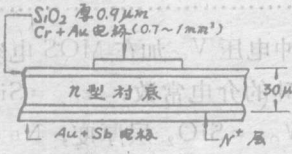 SiO₂ 厚0.9μm
Cr+Au电极(0.7~1mm²)
n型衬底
30μ
Au+Sb 电极
N⁺层